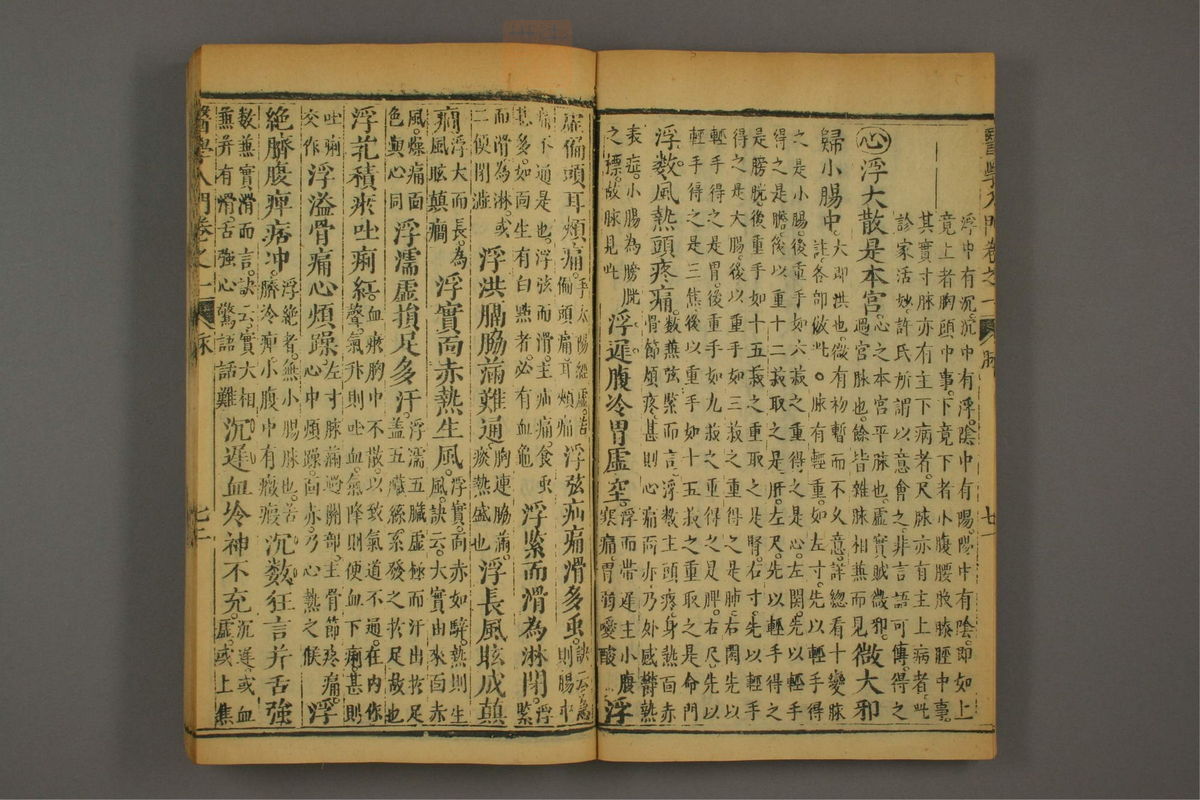 醫學入門卷之一 脉 七一
浮中有沉沉中有浮陰中有陽陽中有陰即如上
竟上者胸頭中事下竟下者小腹腰股膝脛中事
其實寸脉亦有主下病者尺脉亦有主上病者此
診家活妙許氏所謂以意會之非言語可傳得之
心浮大散是本宮心之本宮平脉也虛實賊微邪微大邪
過宮脉也餘皆雜脉相兼而見
歸小腸中大即洪也微有初暫而不久意詳總看十變脉
註各部倣此○脉有輕重如左寸先以輕手得
之是小腸後重手如六菽之重得之是心左關先以輕手
得之是膽後以重十二菽取之是肝左尺先以輕手得之
是膀胱後重手如十五菽之重取之是腎右寸先以輕手
得之是大腸後以重手如三菽之重得之是肺右關先以
輕手得之是胃後重手如九菽之重得之是脾右尺先以
輕手得之是三焦後以重手如十五菽之重取之是命門
浮数風熱頭疼痛数兼弦緊而言浮数主頭疼身熱面赤
骨節煩疼甚則心痛面赤乃外感鬱熱
表症小腸為膀胱浮遲腹冷胃虛空浮而帶遲主小腹浮
之標故脉見此寒痛胃弱噯酸
虛偏頭耳頰痛手太陽經虛
偏頭扁耳頰痛浮弦疝痛滑多虫訣云急則腸中
痛不通是也浮弦而滑主疝痛食虫浮緊而滑為淋閉浮緊
甚多如面生有白點者必有血龜
而滑為淋或浮洪膈脇滿難通胸連脇滿浮長風眩成蘋
二便閉澁痰熱盛也
癇浮大而長為浮實面赤熱生風浮實面赤如醉熱則生
風眩蘋癇風訣云大實由來面赤
風燥痛面浮濡虛損足多汗浮濡五臟虛極而汗出於足
色與心同蓋五臟絲系發之於足故也
浮芤積瘀吐痢紅血瘀胸中不散以致氣道不通在內作
聲氣升則吐血氣降則便血下痢甚則
吐痢浮溢骨痛心煩躁左寸脉滿過關部主骨節疼痛浮
交作心中煩躁面赤乃心熱之候
絶臍腹痺痞冲浮絶者無小腸脉也若沉数狂言并舌強
臍冷痺小腹中有癥瘕
数兼實滑而言訣云實大相沉遲血冷神不充沉遲或血
兼并有滑舌強心驚語話難虛或上焦
醫學入門卷之一 脉 七二